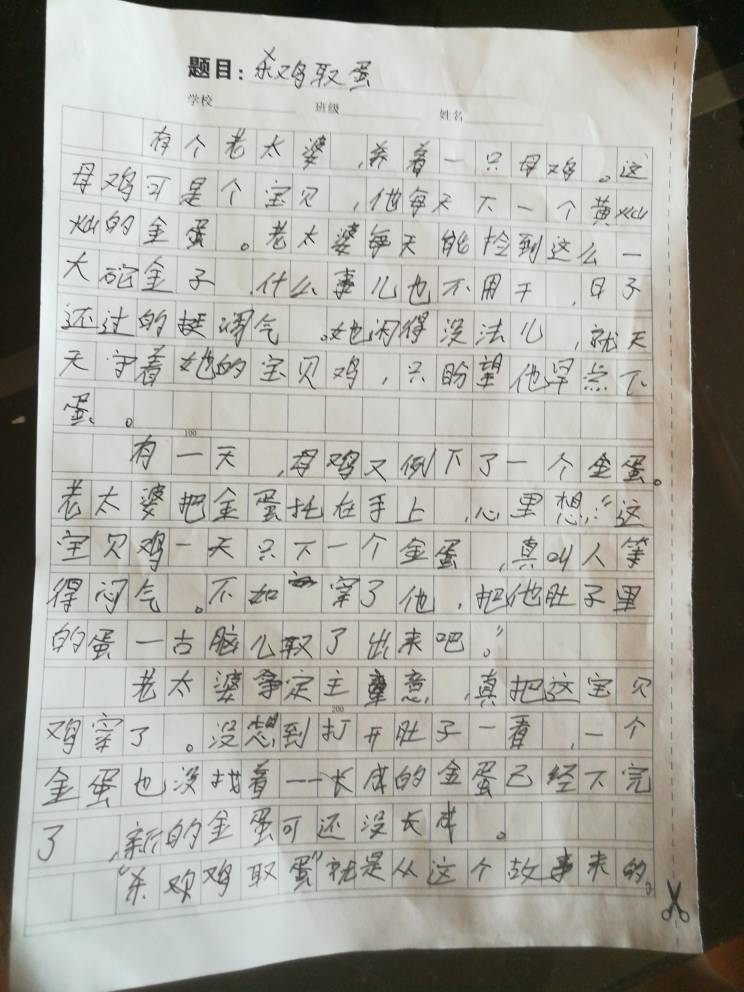 题目：杀鸡取蛋
学校 班级 姓名
有个老太婆，养着一只母鸡。这
母鸡可是个宝贝，他每天下一个黄灿
灿的金蛋。老太婆每天能捡到这么一
大砣金子，什么事儿也不用干，日子
还过的挺阔气。她闲得没法儿，就天
天守着她的宝贝鸡，只盼望他早点下
蛋。
100
有一天，母鸡又例下了一个金蛋。
老太婆把金蛋托在手上，心里想：“这
宝贝鸡一天只下一个金蛋，真叫人等
得闷气。不如宰了他，把他肚子里
的蛋一古脑儿取了出来吧。”
老太婆拿定主意，真把这宝贝
200
鸡宰了。没想到打开肚子一看，一个
金蛋也没找着——长成的金蛋已经下完
了，新的金蛋可还没长成。
“杀鸡取蛋”就是从这个故事来的。